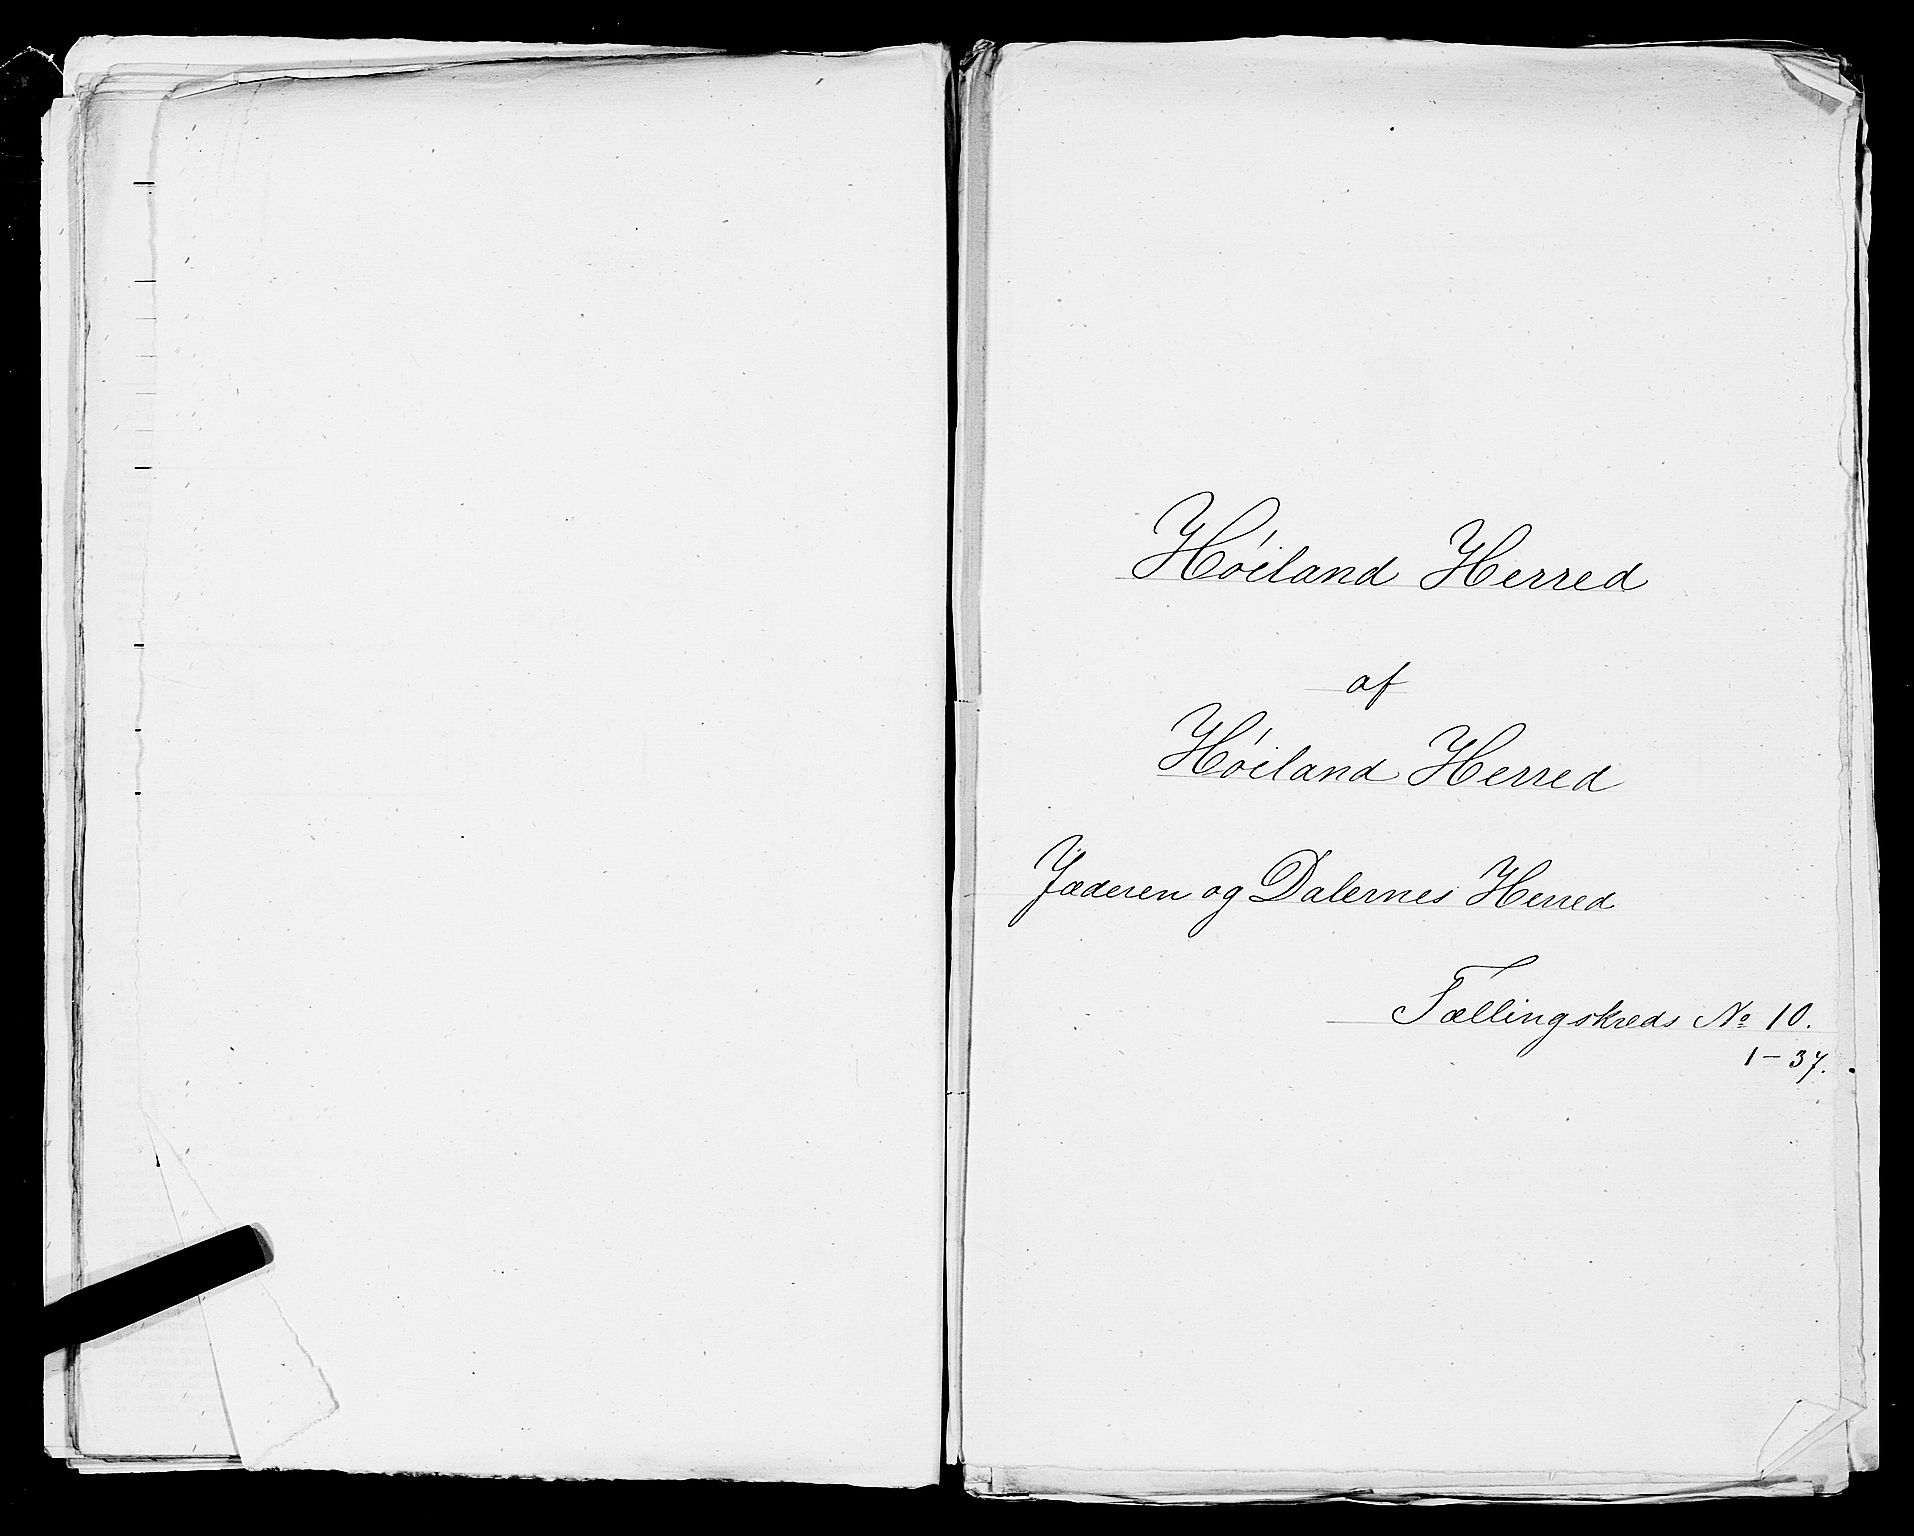 Høiland Herred
af
Høiland Herred
Jæderen og Dalernes Herred
Tællingskreds No 10.
1-37.